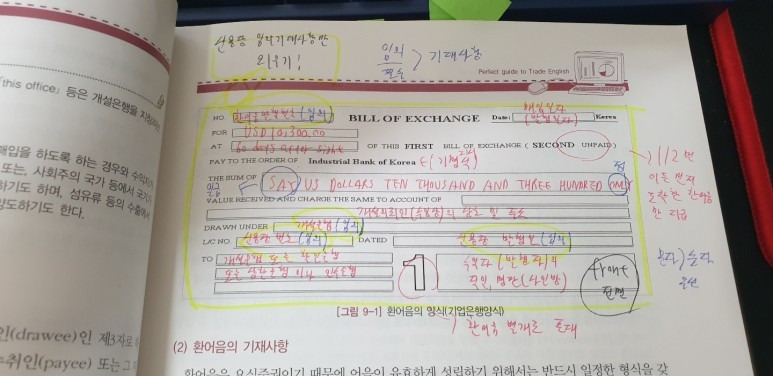 신용장 임의기재사항만
외우기!
임의
필수 > 기재사항
Perfect guide to Trade English
this office」 등은 개설은행을 지칭하는
매입을 하도록 하는 경우와 수익자가
또는, 사회주의 국가 등에서 국가가
하기도 하며, 섬유류 등의 수출에서
양도하기도 한다.
인(drawee)인 제3자로
수취인(payee) 또는 그
NO. 환어음 발행번호 (임의) BILL OF EXCHANGE Date: (발행일자) Korea
FOR USD 10,300.00
AT 60 days after sight OF THIS FIRST BILL OF EXCHANGE (SECOND UNPAID)
PAY TO THE ORDER OF Industrial Bank of Korea
THE SUM OF SAY US DOLLARS TEN THOUSAND AND THREE HUNDRED ONLY
VALUE RECEIVED AND CHARGE THE SAME TO ACCOUNT OF
개설의뢰인(수입상)의 상호 및 주소
DRAWN UNDER 개설은행 (임의)
L/C NO. 신용장 번호 (임의) DATED 신용장 발행일 (임의)
TO 개설은행 또는
또는 상환은행이나 인수은행
1
수출자 (발행자)의
front
전면
1/2 면
문자) 숫자
우선
[그림 9-1] 환어음의 양식(기업은행양식)
(2) 환어음의 기재사항
환어음은 요식증권이기 때문에 어음이 유효하게 성립하기 위해서는 반드시 일정한 형식을 갖